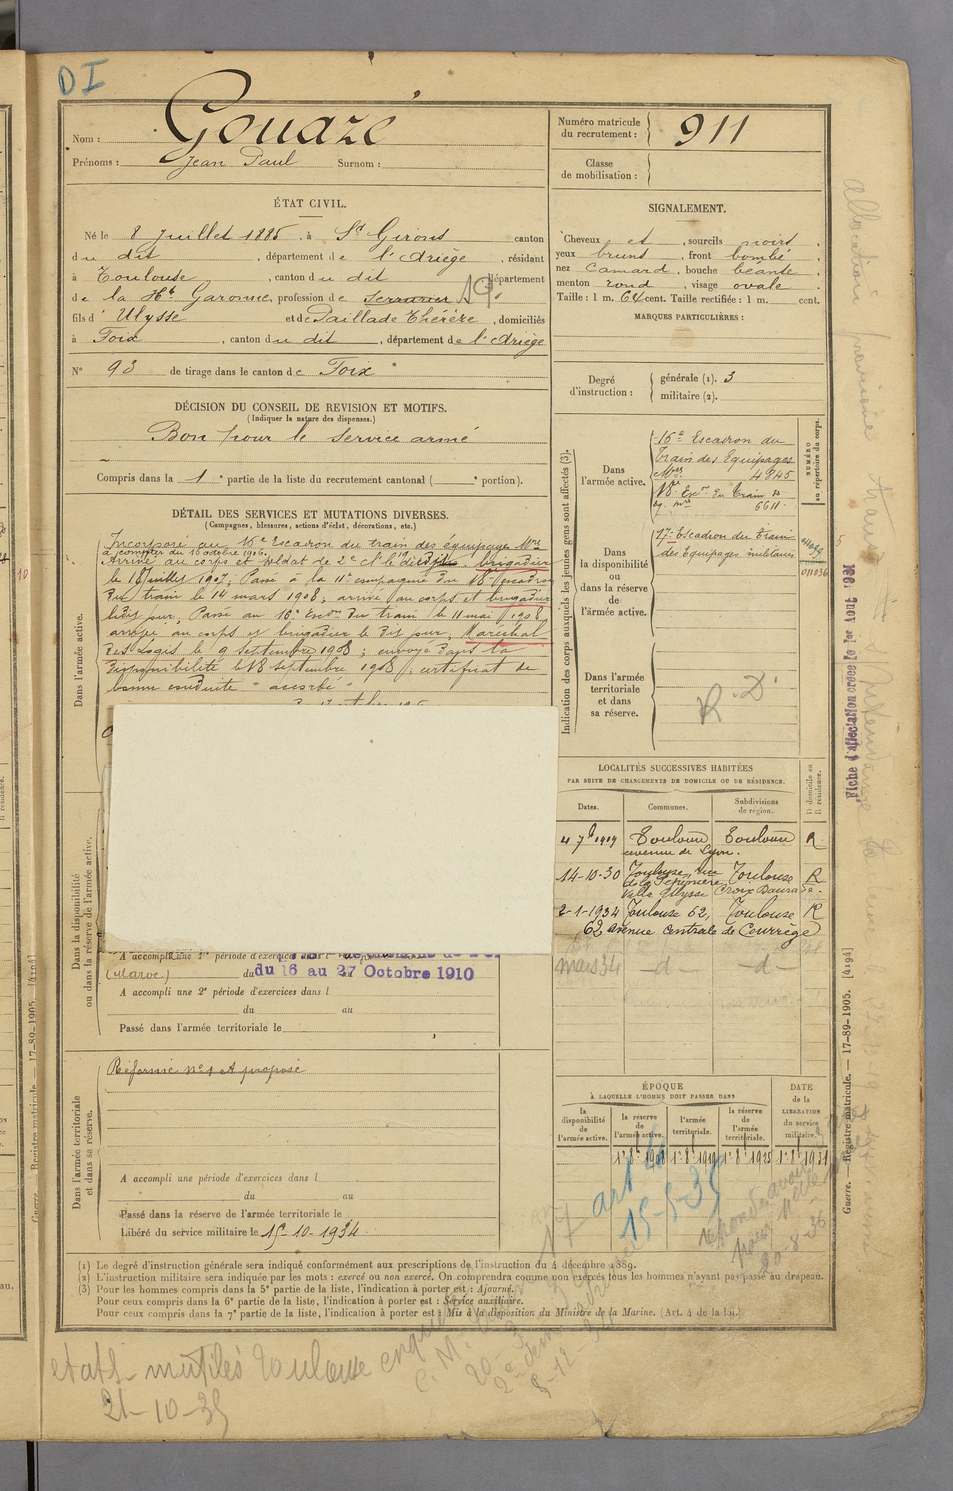 DI
Nom : Gouazé
Prénoms : Jean Paul Surnom :
Numéro matricule du recrutement : 911
Classe de mobilisation :
ÉTAT CIVIL.
Né le 8 Juillet 1885, à St Girons canton
du dit, département de l'Ariège, résidant
à Toulouse, canton du dit département
de la Hte Garonne, profession de Serrurier
fils d'Ulysse et de Paillade Thérèse, domiciliés
à Foix, canton du dit, département de l'Ariège
N° 93 de tirage dans le canton de Foix
SIGNALEMENT.
Cheveux et, sourcils noirs,
yeux bruns, front bombé,
nez camard, bouche béante,
menton rond, visage ovale.
Taille : 1 m. 64 cent. Taille rectifiée : 1 m. cent.
MARQUES PARTICULIÈRES :
Degré d'instruction : générale (1). 3
militaire (2).
DÉCISION DU CONSEIL DE REVISION ET MOTIFS.
(Indiquer la nature des dispenses.)
Bon pour le service armé
Compris dans la 1e partie de la liste du recrutement cantonal ( e portion).
DÉTAIL DES SERVICES ET MUTATIONS DIVERSES.
(Campagnes, blessures, actions d'éclat, décorations, etc.)
Dans l'armée active.
Incorporé au 16e Escadron du train des équipages Mres
à compter du 16 octobre 1906.
Arrivé au corps et soldat de 2e cl le dit jour. brigadier
le 18 juillet 1907, Passé à la 11e compagnie du 18e escadron
du train le 14 mars 1908; arrivé au corps et brigadier
ledit jour, Passé au 16e Escon du train le 11 mai 1908
arrivé au corps et brigadier le dit jour, Maréchal
des Logis le 9 septembre 1908; envoyé dans la
disponibilité le 18 septembre 1908; certificat de
bonne conduite "accordé"
Indication des corps auxquels les jeunes gens sont affectés (3).
NUMÉRO au répertoire du corps.
Dans l'armée active.
16e Escadron du
Train des Equipages
Mres 4845
18e Escon du Train
6611
Dans la disponibilité ou dans la réserve de l'armée active.
17e Escadron du Train
des Équipages militaires
011036
Dans l'armée territoriale et dans sa réserve.
R.D.
Fiche d'affectation créée le 1er Août 1931
LOCALITÉS SUCCESSIVES HABITÉES
PAR SUITE DE CHANGEMENTS DE DOMICILE OU DE RÉSIDENCE.
Dates. Communes. Subdivisions de région. D domicile ou R résidence.
4 7bre 1909 Toulouse avenue de Lyon. Toulouse R
14-10-30 Toulouse, rue de la Pépinière Villa Ulysse Toulouse Croix Daurade R
2-1-1934 Toulouse 62, Toulouse R
62 avenue centrale de Courrège
mars 34 -d- -d-
Dans la disponibilité ou dans la réserve de l'armée active.
A accompli une 1re période d'exercices
(Maroc) du 16 au 27 Octobre 1910
A accompli une 2e période d'exercices dans l
du au
Passé dans l'armée territoriale le
Dans l'armée territoriale et dans sa réserve.
Réformé n°1 et proposé
A accompli une période d'exercices dans l
du au
Passé dans la réserve de l'armée territoriale le
Libéré du service militaire le 15-10-1934
ÉPOQUE
À LAQUELLE L'HOMME DOIT PASSER DANS
DATE de la LIBÉRATION du service militaire.
la disponibilité de l'armée active. la réserve de l'armée active. l'armée territoriale. la réserve de l'armée territoriale.
art 4
15-5-35
20-8-36
(1) Le degré d'instruction générale sera indiqué conformément aux prescriptions de l'instruction du 4 décembre 1889.
(2) L'instruction militaire sera indiquée par les mots : exercé ou non exercé. On comprendra comme non exercés tous les hommes n'ayant pas passé au drapeau.
(3) Pour les hommes compris dans la 5e partie de la liste, l'indication à porter est : Ajourné.
Pour ceux compris dans la 6e partie de la liste, l'indication à porter est : Service auxiliaire.
Pour ceux compris dans la 7e partie de la liste, l'indication à porter est : Mis à la disposition du Ministre de la Marine. (Art. 4 de la loi.)
Guerre. — Registre matricule. — 17-89-1905. [4194]
etats mutilés Toulouse
21-10-35